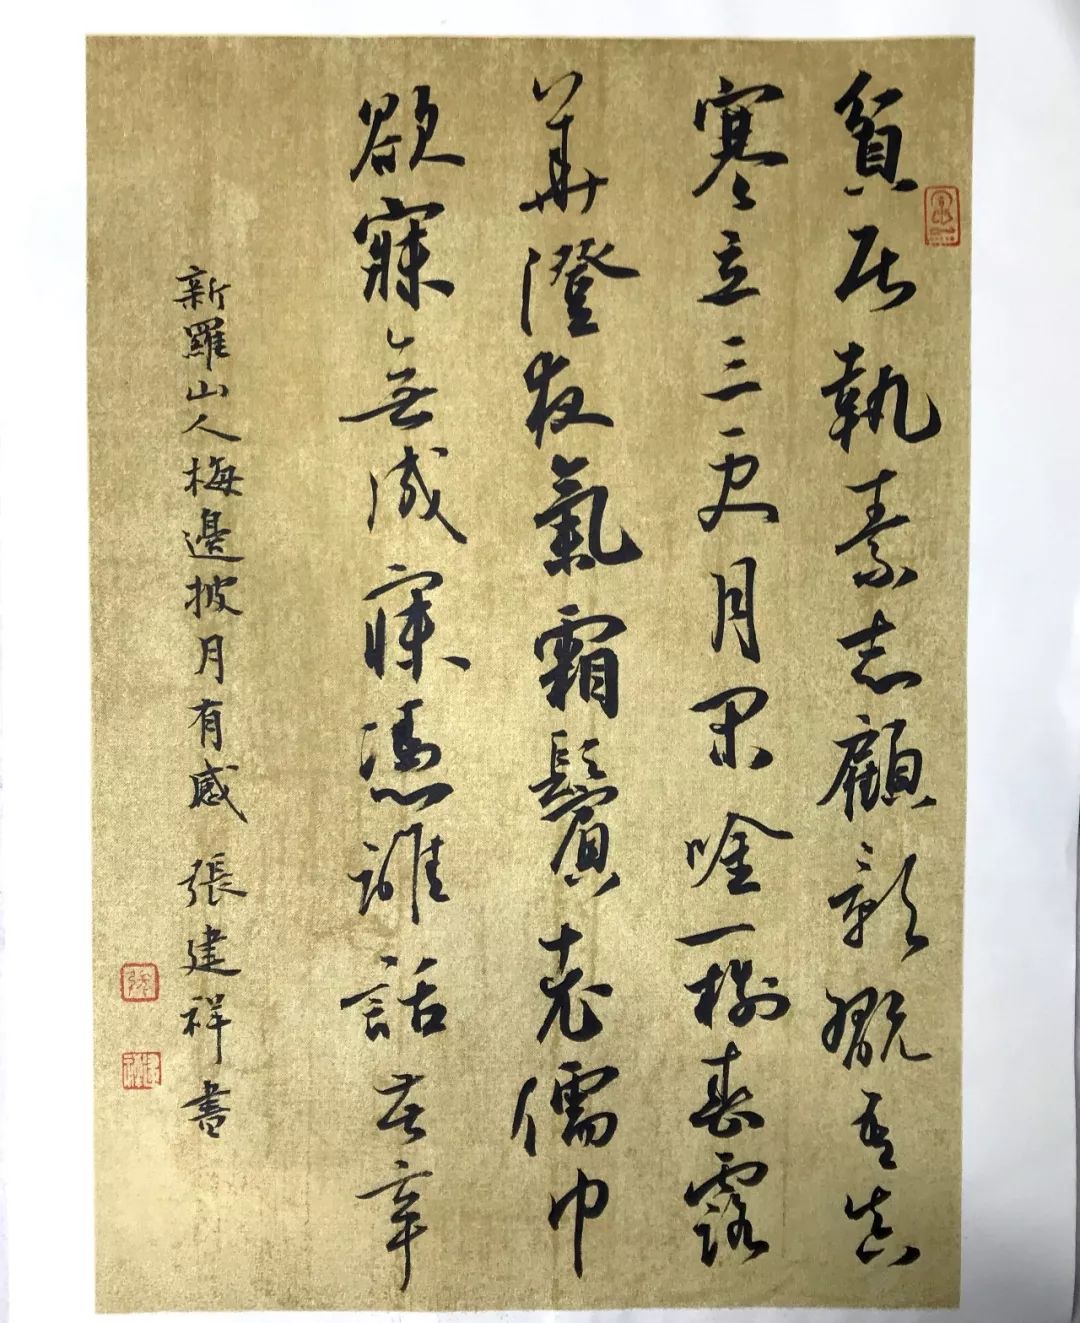 貧居執素志顧影吾真
寒立三更月唫一樹春露
華澄夜氣霜鬢老儒巾
欲寐無成寐憑誰話苦辛
新羅山人梅邊披月有感 張建祥書